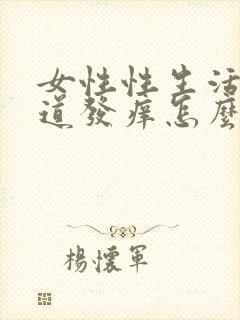 女性性生活
道發痒怎麼
楊懷軍